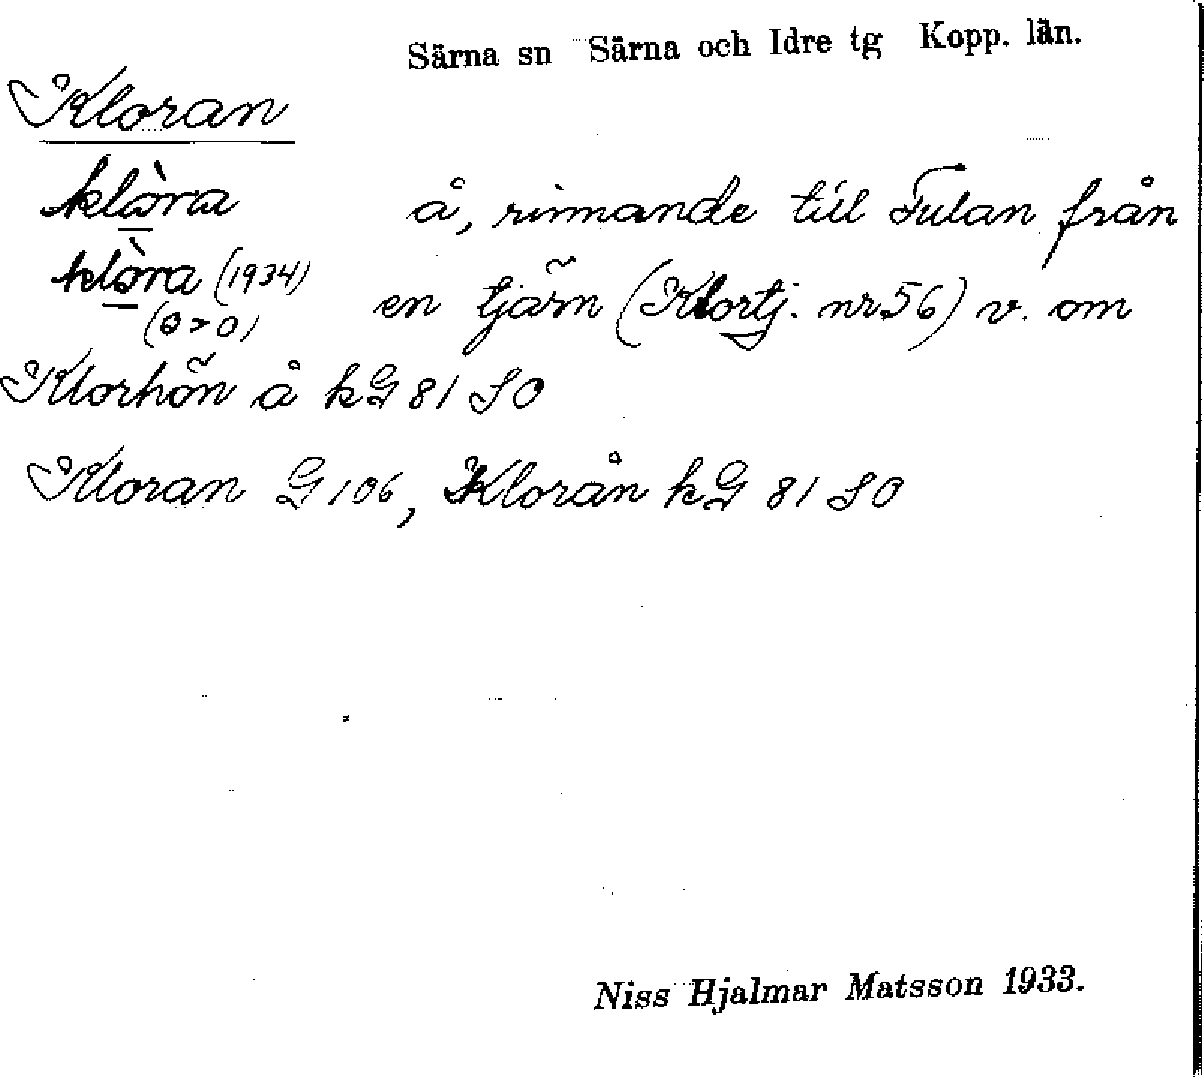 Särna sn Särna och Idre tg Kopp. län.
Kloran
klò̱ra å, rinnande till Fulan från
klò̱ra (1934) en tjärn (Klortj. nr 56) v. om
(θ > o)
Klorhön å kG 81 SO
Kloran G 106, Klorån kG 81 SO
Niss Hjalmar Matsson 1933.